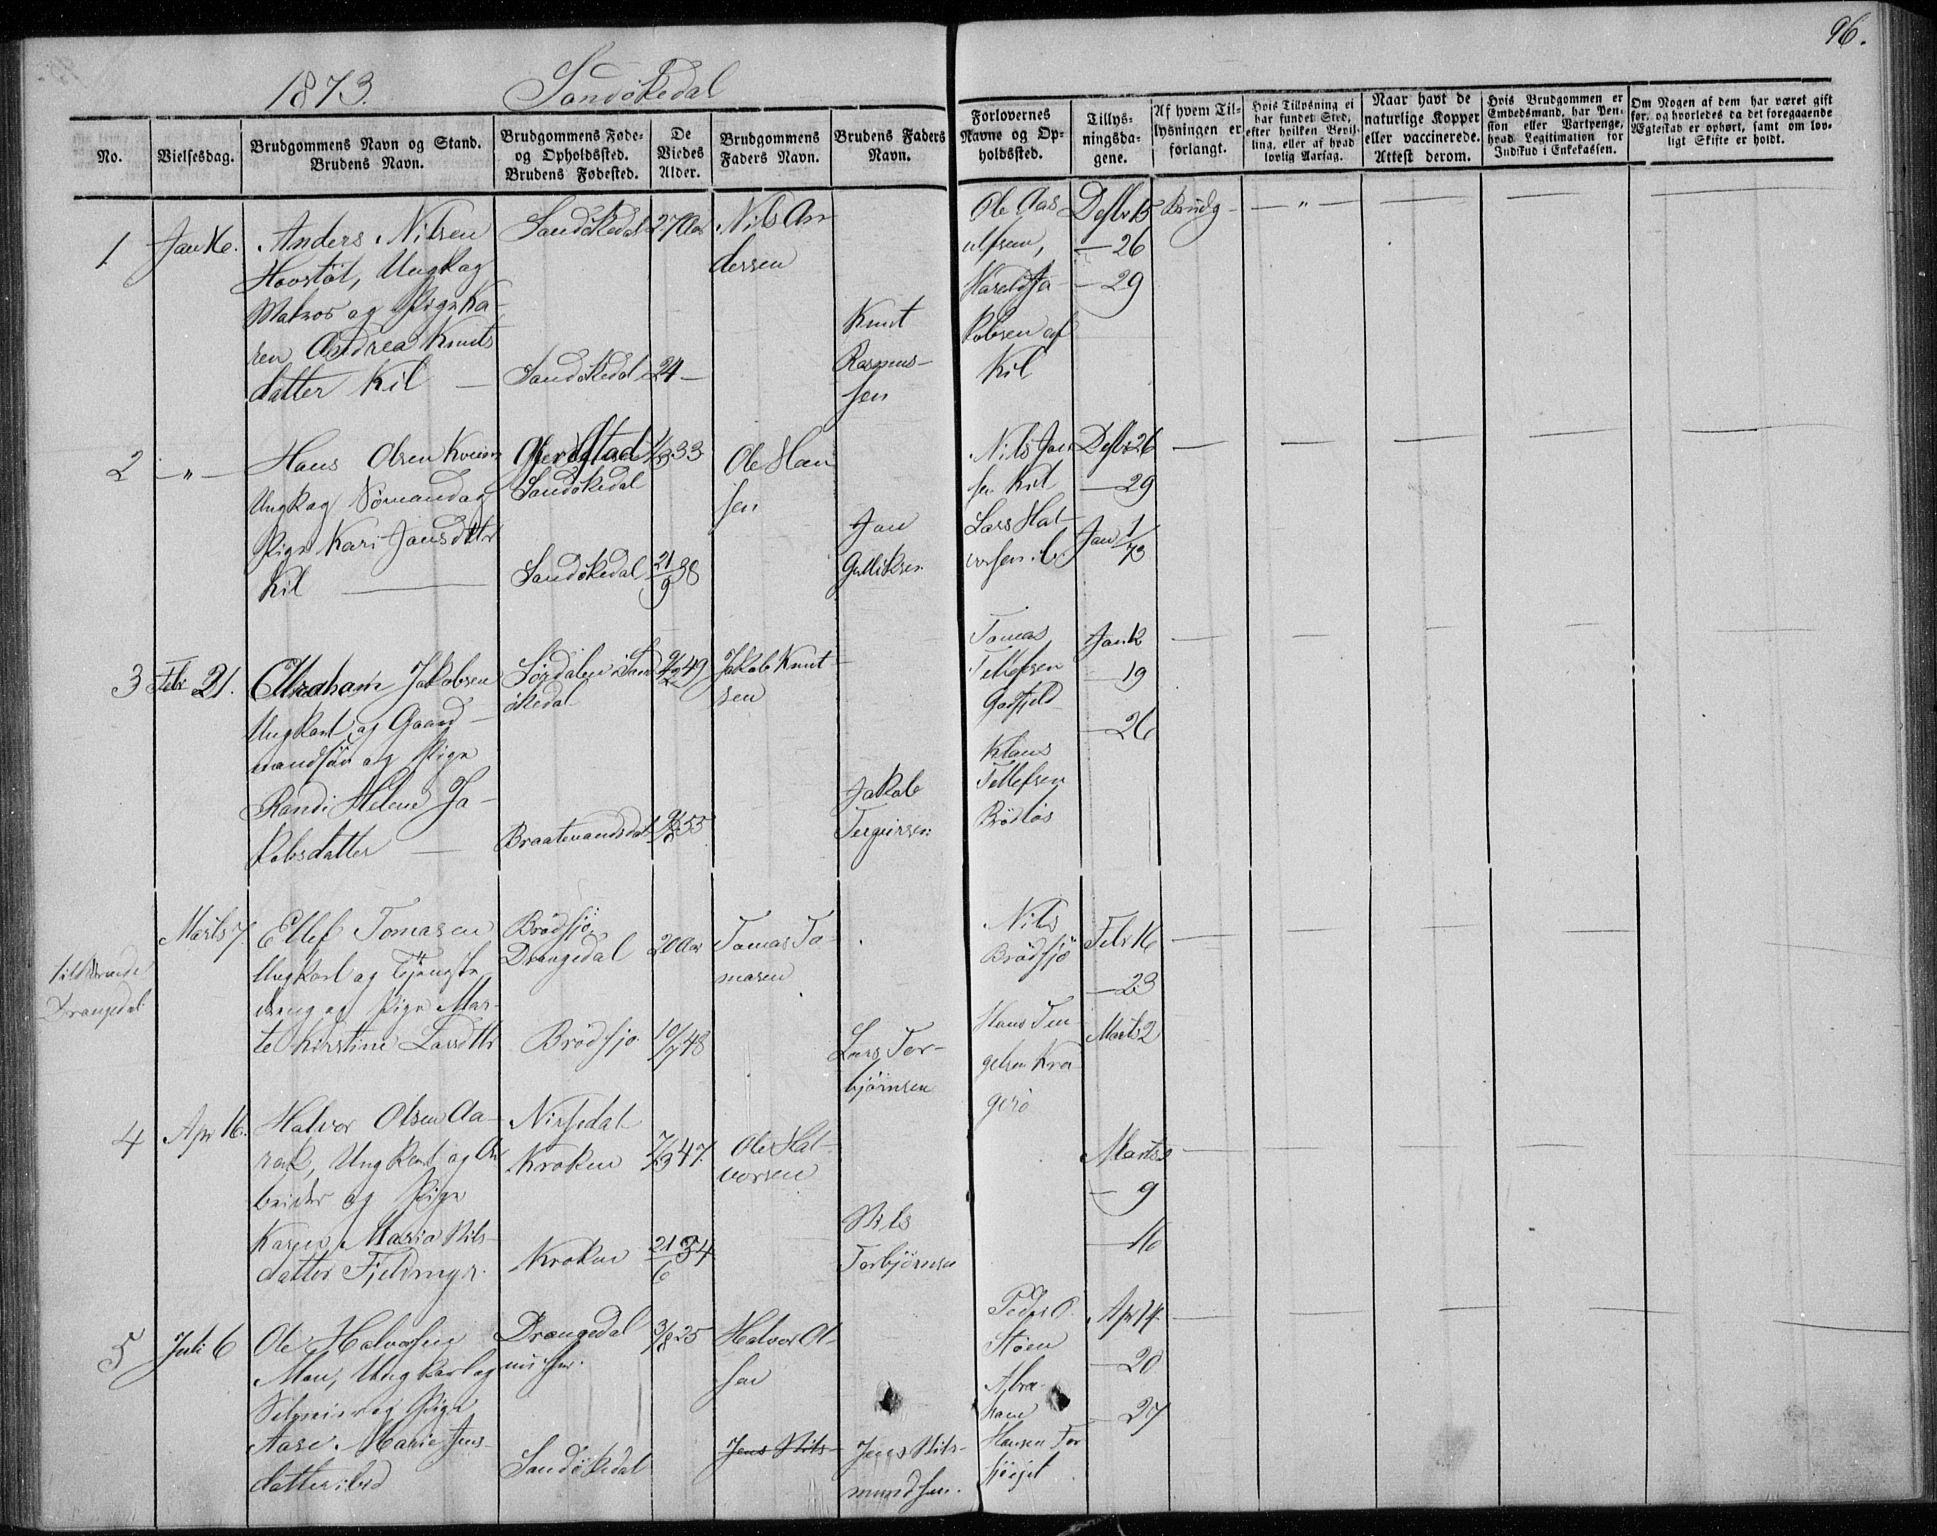 96.
1873. Sandökedal
No.
Vielsesdag.
Brudgommens Navn og Stand.
Brudens Navn.
Brudgommens Føde-
og Opholdssted.
Brudens Fødested.
De
Viedes
Alder.
Brudgommens
Faders Navn.
Brudens Faders
Navn.
Forlovernes
Navne og Op-
holdssted.
Tillys-
ningsda-
gene.
Af hvem Til-
lysningen er
forlangt.
Hvis Tillysning ei
har fundet Sted,
efter hvilken Bevil-
ling, eller af hvad
lovlig Aarsag.
Naar havt de
naturlige Kopper
eller vaccinerede.
Attest derom.
Hvis Brudgommen er
Embedsmand, har Pen-
sion eller Vartpenge,
hvad Legitimation for
Indskud i Enkekassen.
Om Nogen af dem har været gift
før, og hvorledes da det foregaaende
Ægteskab er ophørt, samt om lov-
ligt Skifte er holdt.
1
Jan 16.
Anders Nilsen
Hovstöt, Ungk og
Matros og Pige Ka-
ren Andrea Knuts
datter Kil —
Sandökedal
Sandökedal
27 Aar
24 —
Nils An
dersen
Knut
Rasmus-
sen
Ole Aas
ulfsen,
Harald Ja-
kobsen af
Kil
Desbr 15
— 26
— 29
Brudg — " —
2
— " —
Hans Olsen
Ungk og Sömand og
Pige Kari Jansdtter
Kil —
Gjerestad
Sandökedal
Sandökedal
33
21/9 38
Ole Han
sen
Jan
Gulliksen
Nils Jan
sen Kil
Lars Hal-
vorsen ib.
Desbr 26
— 29
Jan 1/73
3
Febr 21.
Abraham Jakobsen
Ungkarl og Gaard-
mandsön og Pige
Randi Helene Ja-
kobsdatter —
Sördalen i Sand
ökedal
Braatmandsdal
49
55
Jakob Knut-
sen
Jakob
Terjersen
Tomas
Tellefsen
Klaus
Tellefsen
Brödlös
Jan 12
— 19
— 26
Drangedal
Marts 7.
Ellef Tomasen
Ungkarl og Tjeneste
dreng og Pige Mar-
te Kirstine Larsdttr
Brödsjö
Drangedal
Brödsjö.
20 Aar
10/7 48
Tomas To-
masen
Lars Tor-
björnsen
Nils
Brödsjö
Hans Ten-
gelsen Kra-
gerö
Febr 16
— 23
Marts 2
4
Apr 16.
Halvor Olsen Aa-
rak, Ungkarl og Ar
beider og Pige
Karen Maria Nils-
datter Fjeldmyr.
Nissedal
Kroken
Kroken
47.
21/6 54
Ole Hal-
vorsen
Nils
Torbjörnsen
Marts 2
— 9
— 16
5
Juli 6
Ole Halvorsen
Moen, Ungkarl og
Selveier og Pige
Aase Marie Jens-
datter ibid
Drangedal
Sandökedal
3/8 25
Halvor Ol-
sen
Jens Nils-
Jens Nils-
mundsen.
Peder O.
Stöen
Abra-
ham
Hansen Tor
Apr 14.
— 20
— 27